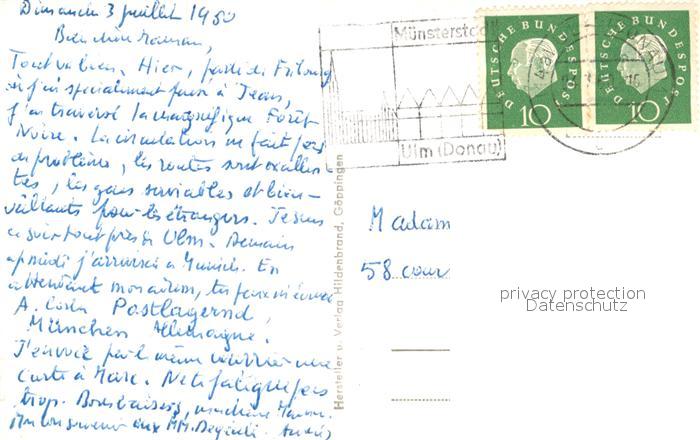 Dimanche 3 juillet 1960
Bien chère Maman,
Tout va bien. Hier, parti de Fribourg
où j'ai spécialement pensé à Jean,
j'ai traversé la magnifique Forêt
Noire. La circulation ne fait pas
de problème, les routes sont excellen-
tes, les gens serviables et bien-
veillants pour les étrangers. Je suis
ce soir tout près de Ulm. Demain
après midi j'arriverai à Munich. En
attendant mon tu peux m'écrire
A. Postlagernd,
München Allemagne.
J'envoie par le même courrier une
carte à Marc. Ne te fatigue pas
trop. Bons baisers, ma chère Maman.
Mon souvenir aux MM. André
Hersteller u. Verlag Hildenbrand, Göppingen
Münsterstadt
Ulm (Donau)
DEUTSCHE BUNDESPOST
10
DEUTSCHE BUNDESPOST
10
Madam
58 cour
privacy protection
Datenschutz